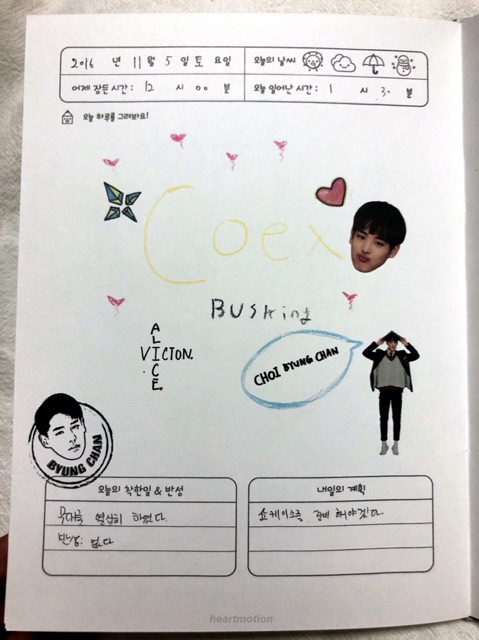 2016 년 11 월 5 일 토 요일 오늘의 날씨
어제 잠든 시간 : 12 시 00 분 오늘 일어난 시간 : 1 시 30 분
오늘 하루를 그려봐요!
Coex
BUSking
ALICE
VICTON
CHOI BYUNG CHAN
BYUNG CHAN
오늘의 착한일 & 반성
무대를 열심히 하였다.
반성: 없다
내일의 계획
쇼케이스를 준비 해야겠다.
heartmotion